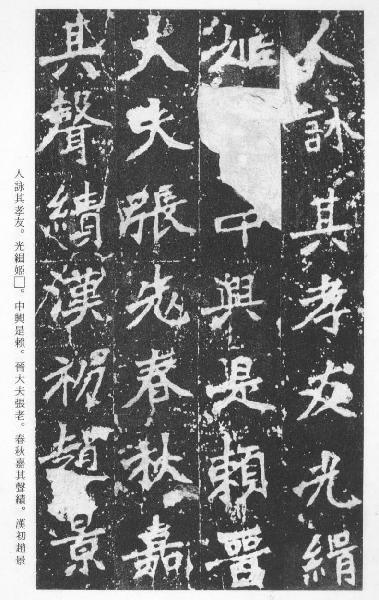 人詠其孝友光緝
姬中興是賴晉
大夫張老春秋嘉
其聲績漢初趙景
人詠其孝友。光緝姬□。中興是賴。晉大夫張老。春秋嘉其聲績。漢初趙景